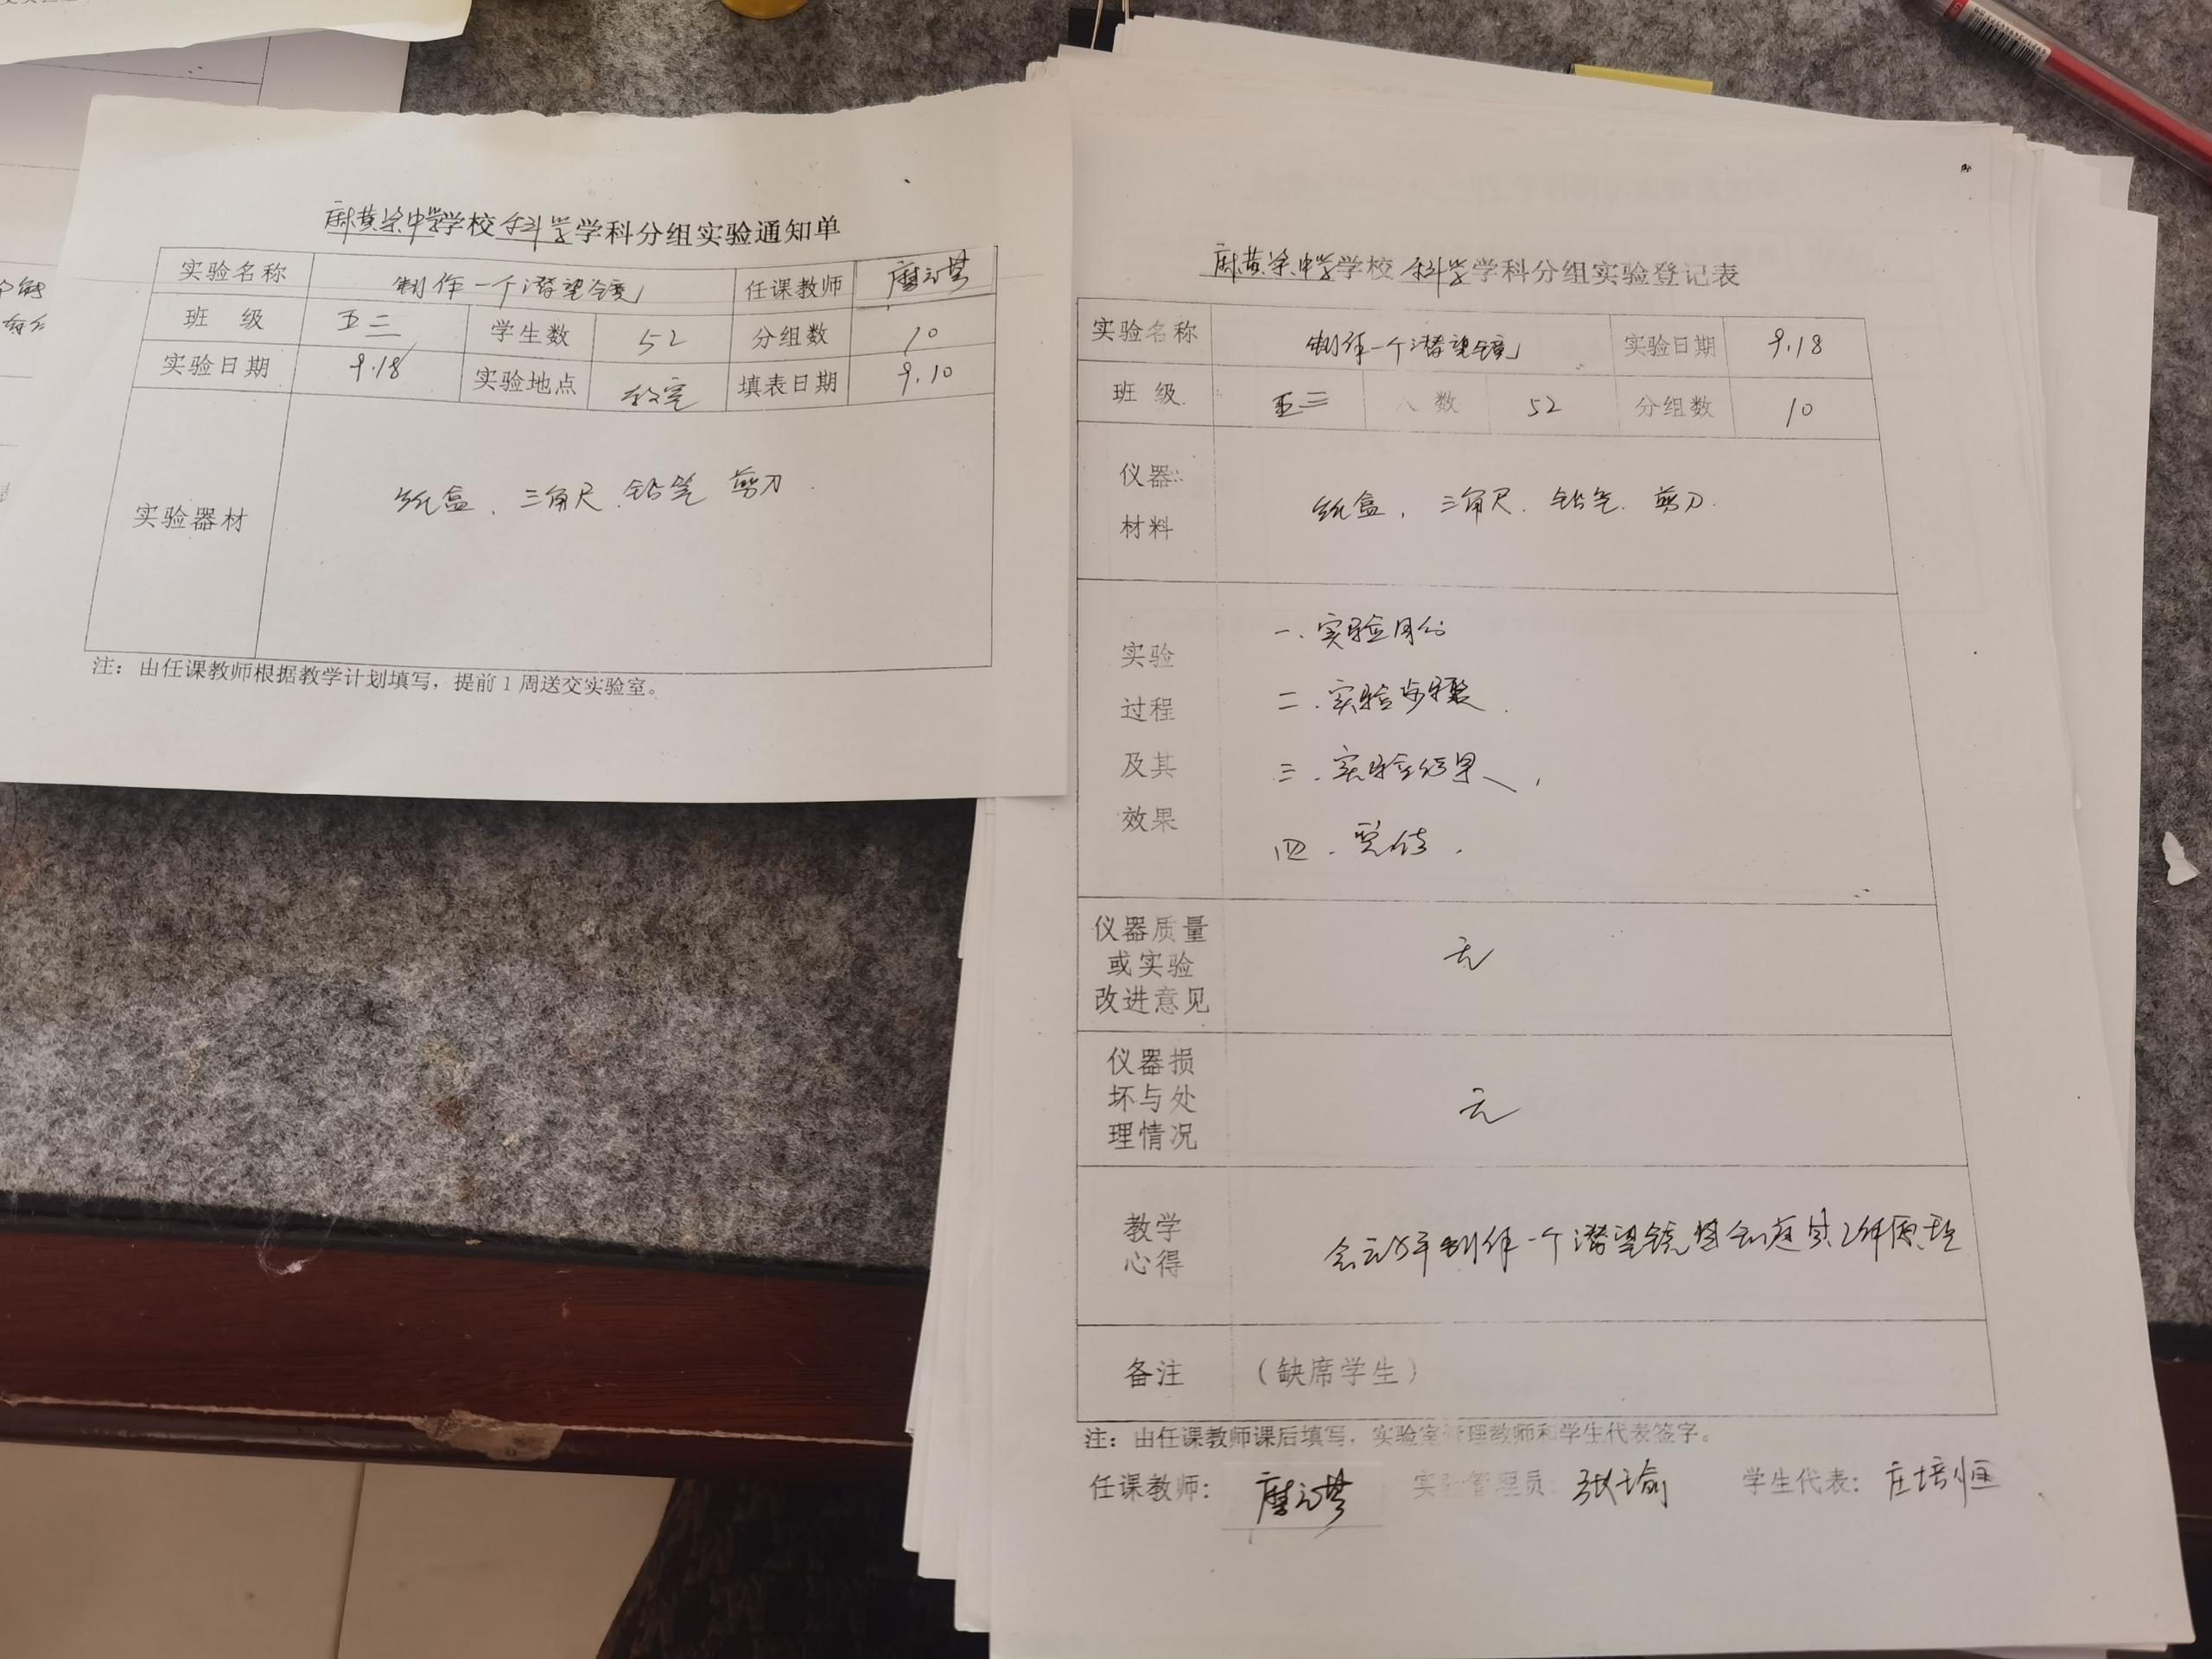 麻黄梁中学学校科学学科分组实验通知单
实验名称 制作一个潜望镜 任课教师
班 级 五二 学生数 52 分组数 10
实验日期 9.18 实验地点 教室 填表日期 9.10
实验器材 纸盒、三角尺、铅笔 剪刀
注：由任课教师根据教学计划填写，提前1周送交实验室。
麻黄梁中学学校科学学科分组实验登记表
实验名称 制作一个潜望镜 实验日期 9.18
班 级 五三 人 数 52 分组数 10
仪器
材料
纸盒、三角尺、铅笔、剪刀.
实验
过程
及其
效果
一.实验目的
二.实验步骤.
三.实验结果
四.
仪器质量
或实验
改进意见
无
仪器损
坏与处
理情况
无
教学
心得
会动手制作一个潜望镜 其工作原理
备注 （缺席学生）
注：由任课教师课后填写，实验室管理教师和学生代表签字。
任课教师： 实验管理员 张瑜 学生代表：庄培恒